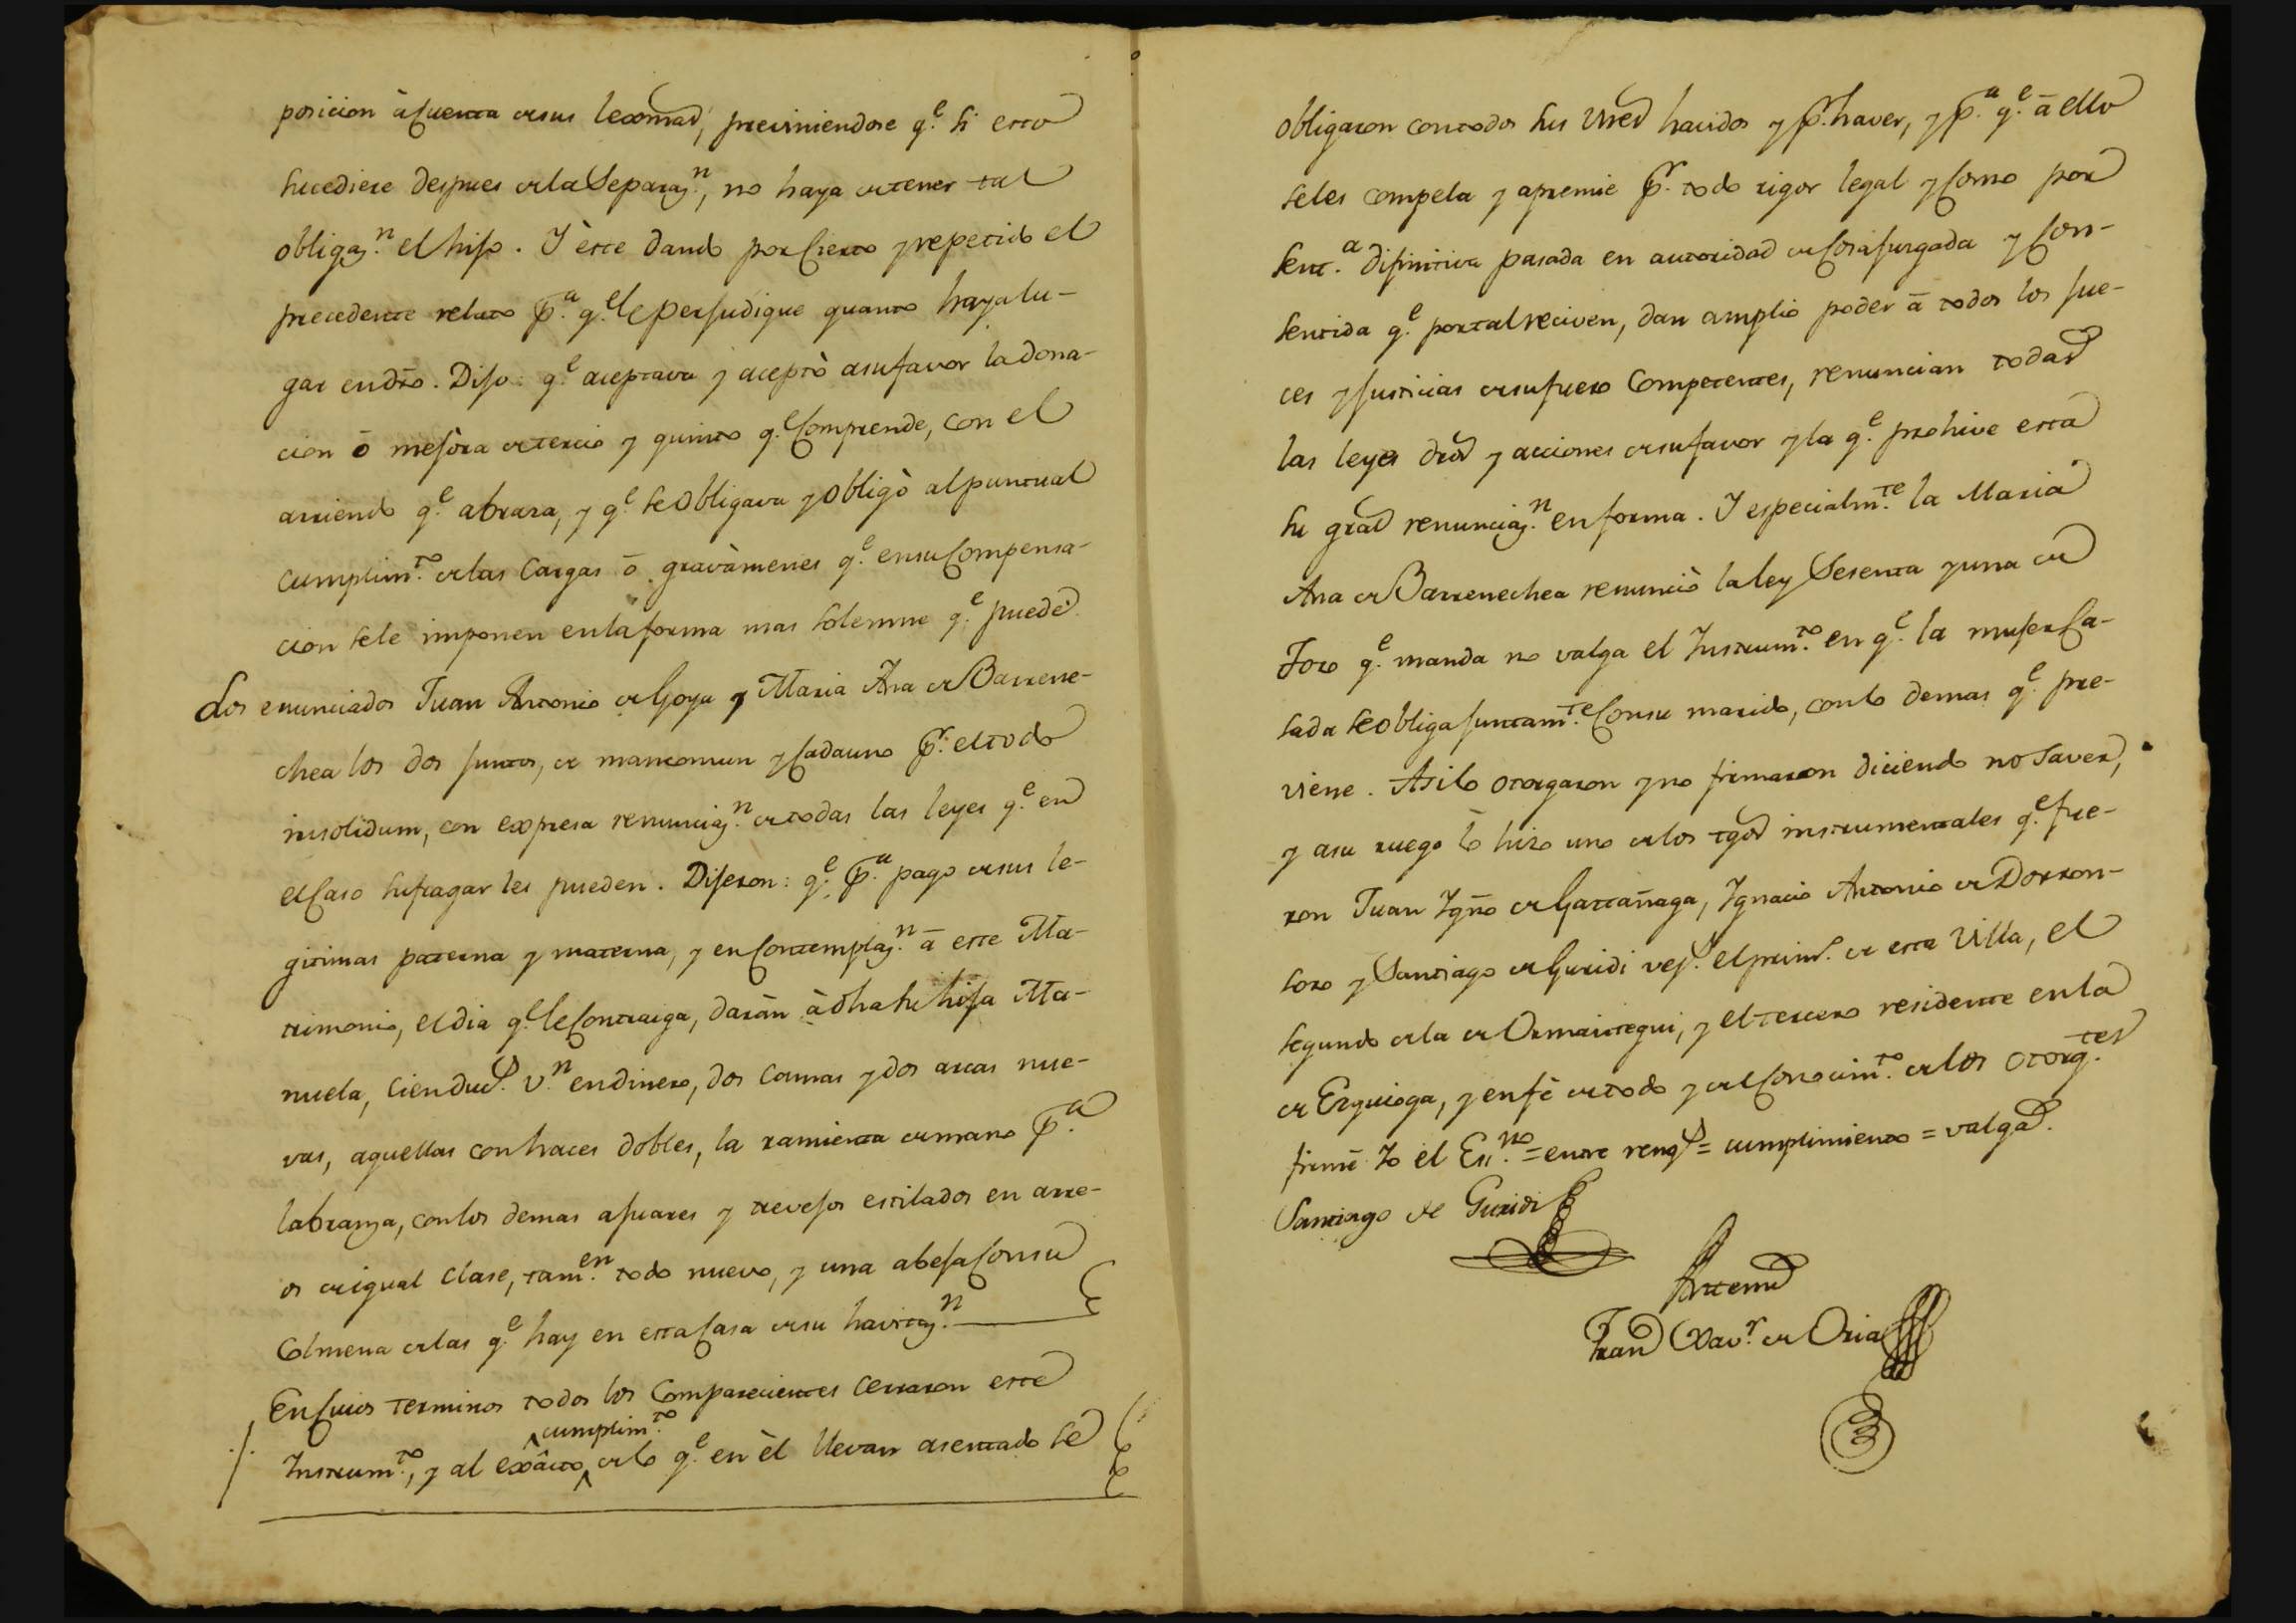 posicion à cuenta de sus lexmas, previniendose q.e si esto
sucediere despues de la Separaz.n, no haya de tener tal
obligaz.n el hijo. Y èste dando por cierto y repetido el
precedente relato p.a q.e le perjudique quanto haya lu-
gar en dro. Dijo: q.e aceptava y aceptò a su favor la dona-
cion ò mejora de tercio y quinto q.e comprende, con el
arriendo q.e abraza, y q.e se obligava y obligò al puntual
cumplim.to de las cargas ò gravàmenes q.e en su compensa-
cion se le imponen en la forma mas solemne q.e puede.
Los enunciados Juan Antonio de Goya y Maria Ana de Barrene-
chea los dos juntos, de mancomun y cada uno p.r el todo
insolidum, con expresa renunciaz.n de todas las leyes q.e en
el caso sufragar les pueden. Dijeron: q.e p.a pago de sus le-
gitimas paterna y materna, y en contemplaz.n à este Ma-
trimonio, el dia q.e le contraiga, daràn à dha su hija Ma-
nuela, cien duc.s v.n en dinero, dos camas y dos arcas nue-
vas, aquellas con haces dobles, la ramienta de mano p.a
labranza, con los demas ajuares y trevejos estilados en arre-
os de igual clase, tam.en todo nuevo, y una abeja con su
colmena de las q.e hay en esta casa de su havitaz.n
En cuios terminos todos los comparecientes cerraron este
cumplim.to
Instrum.to, y al exâcto de lo q.e en èl llevan asentado se
obligaron con todos sus vnes havidos y p.r haver, y p.a q.e à ello
se les compela y apremie p.r todo rigor legal y como por
sent.a difinitiva pasada en autoridad de cosa juzgada y con-
sentida q.e por tal reciven, dan amplio poder à todos los jue-
ces y justicias de su fuero competentes, renuncian todas
las leyes dros y acciones de su favor y la q.e prohive esta
su gral renunciaz.n en forma. Y especialm.te la Maria
Ana de Barrenechea renunciò la ley Sesenta y una de
Toro q.e manda no valga el Instrum.to en q.e la mujer ca-
sada se obliga juntam.te con su marido, con lo demas q.e pre-
viene. Asi lo otorgaron y no firmaron diciendo no saver,
y a su ruego lo hizo uno de los tgos instrumentales q.e fue-
ron Juan Ign.o de Gastañaga, Ignacio Antonio de Dorron-
soro y Santiago de Guridi vez.s el prim.o de esta Villa, el
segundo de la de Ormaiztegui, y el tercero residente en la
de Ezquioga, y en fè de todo y del conocim.to de los otorg.tes
firmè Yo el Ess.no = entre reng.s = cumplimiento = valga.
Santiago de Guridi
Antemi
Fran.co Xav.r de Oria